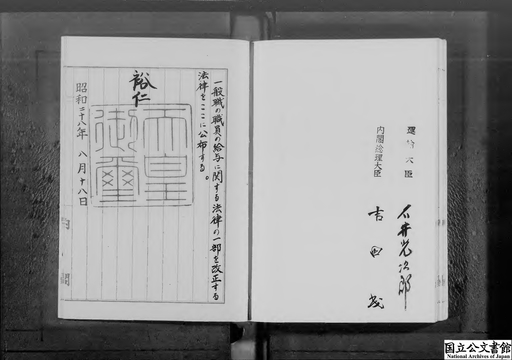 一般職の職員の給与に関する法律の一部を改正する
法律をここに公布する。
裕仁
天皇
御璽
昭和二十八年 八月十八日
内閣
運輸大臣
石井光次郎
内閣総理大臣
吉田茂
国立公文書館
National Archives of Japan